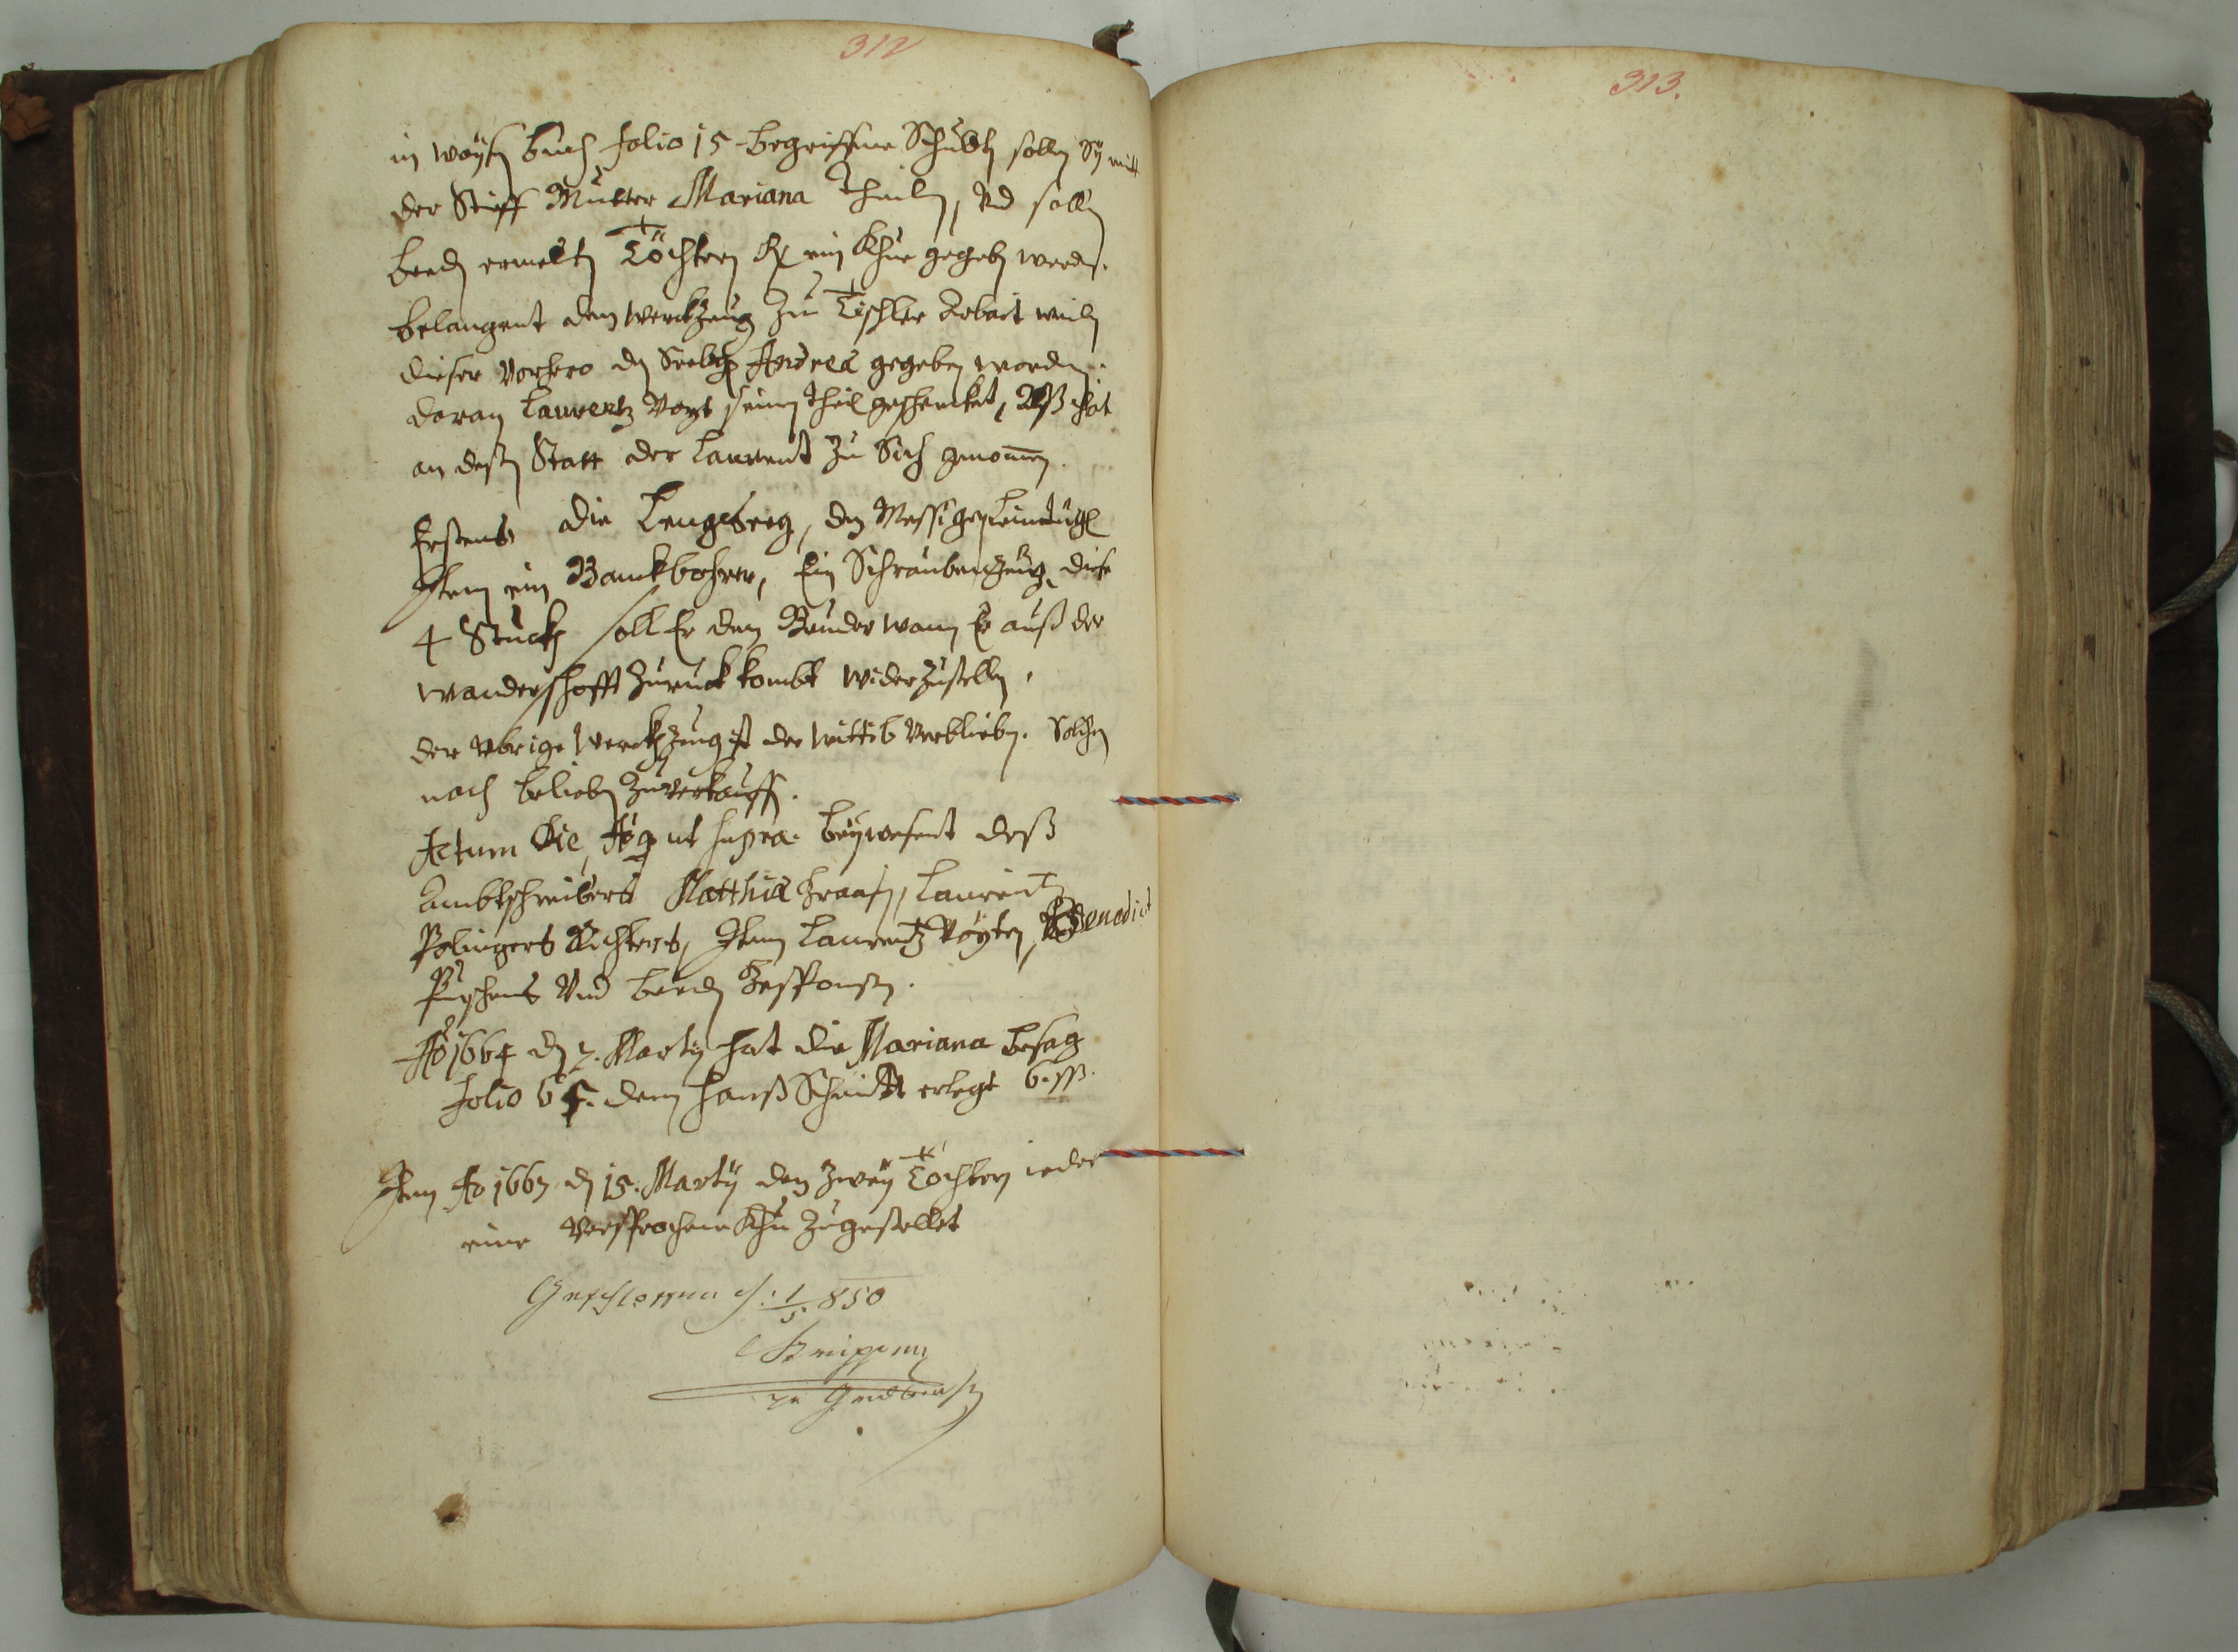 312
in waysen buch folio 15 begriffene Schulden sollen Sy mit
der Stieff Mutter Mariana theilen, Vnd sollen
beeden ermelten Töchtern ein Khue gegeben werden.
belangent den werckzeug Zu Tischler Arbait weilen
dieser vorhero den Andrea gegeben worden.
daran Laurentz Voyt seinen theil geschenckt, Alß hat
an dessen Statt der Laurent Zu Sich genommen.
Erstens die
Item ein Banckbohrer, Ein Schraubenzeug, diese
4 Stuckh soll Er dem Bruder wann Er auß der
wanderschafft Zuruckh kombt widerzustellen.
der vbrige Werckhzeug ist der wittib verblieben. Solchen
nach belieben Zuverkauffen.
Actum Die, Ao ut supra. beywesent deß
Ambtschreibers Matthia Laurentz
Polingers Richters, Item Laurentz Voyten, Benedict
Vnd beeden
Ao 1664 den 7. Marty hat die Mariana besag
folio 65. dem Hanß Schmidt erlegt 6. ß.
Item Ao 1667 den 15. Martÿ den Zweÿ Töchtern ieder
eine versprochene Khu Zugestellet
Geschlossen d. 1/5 850
313.